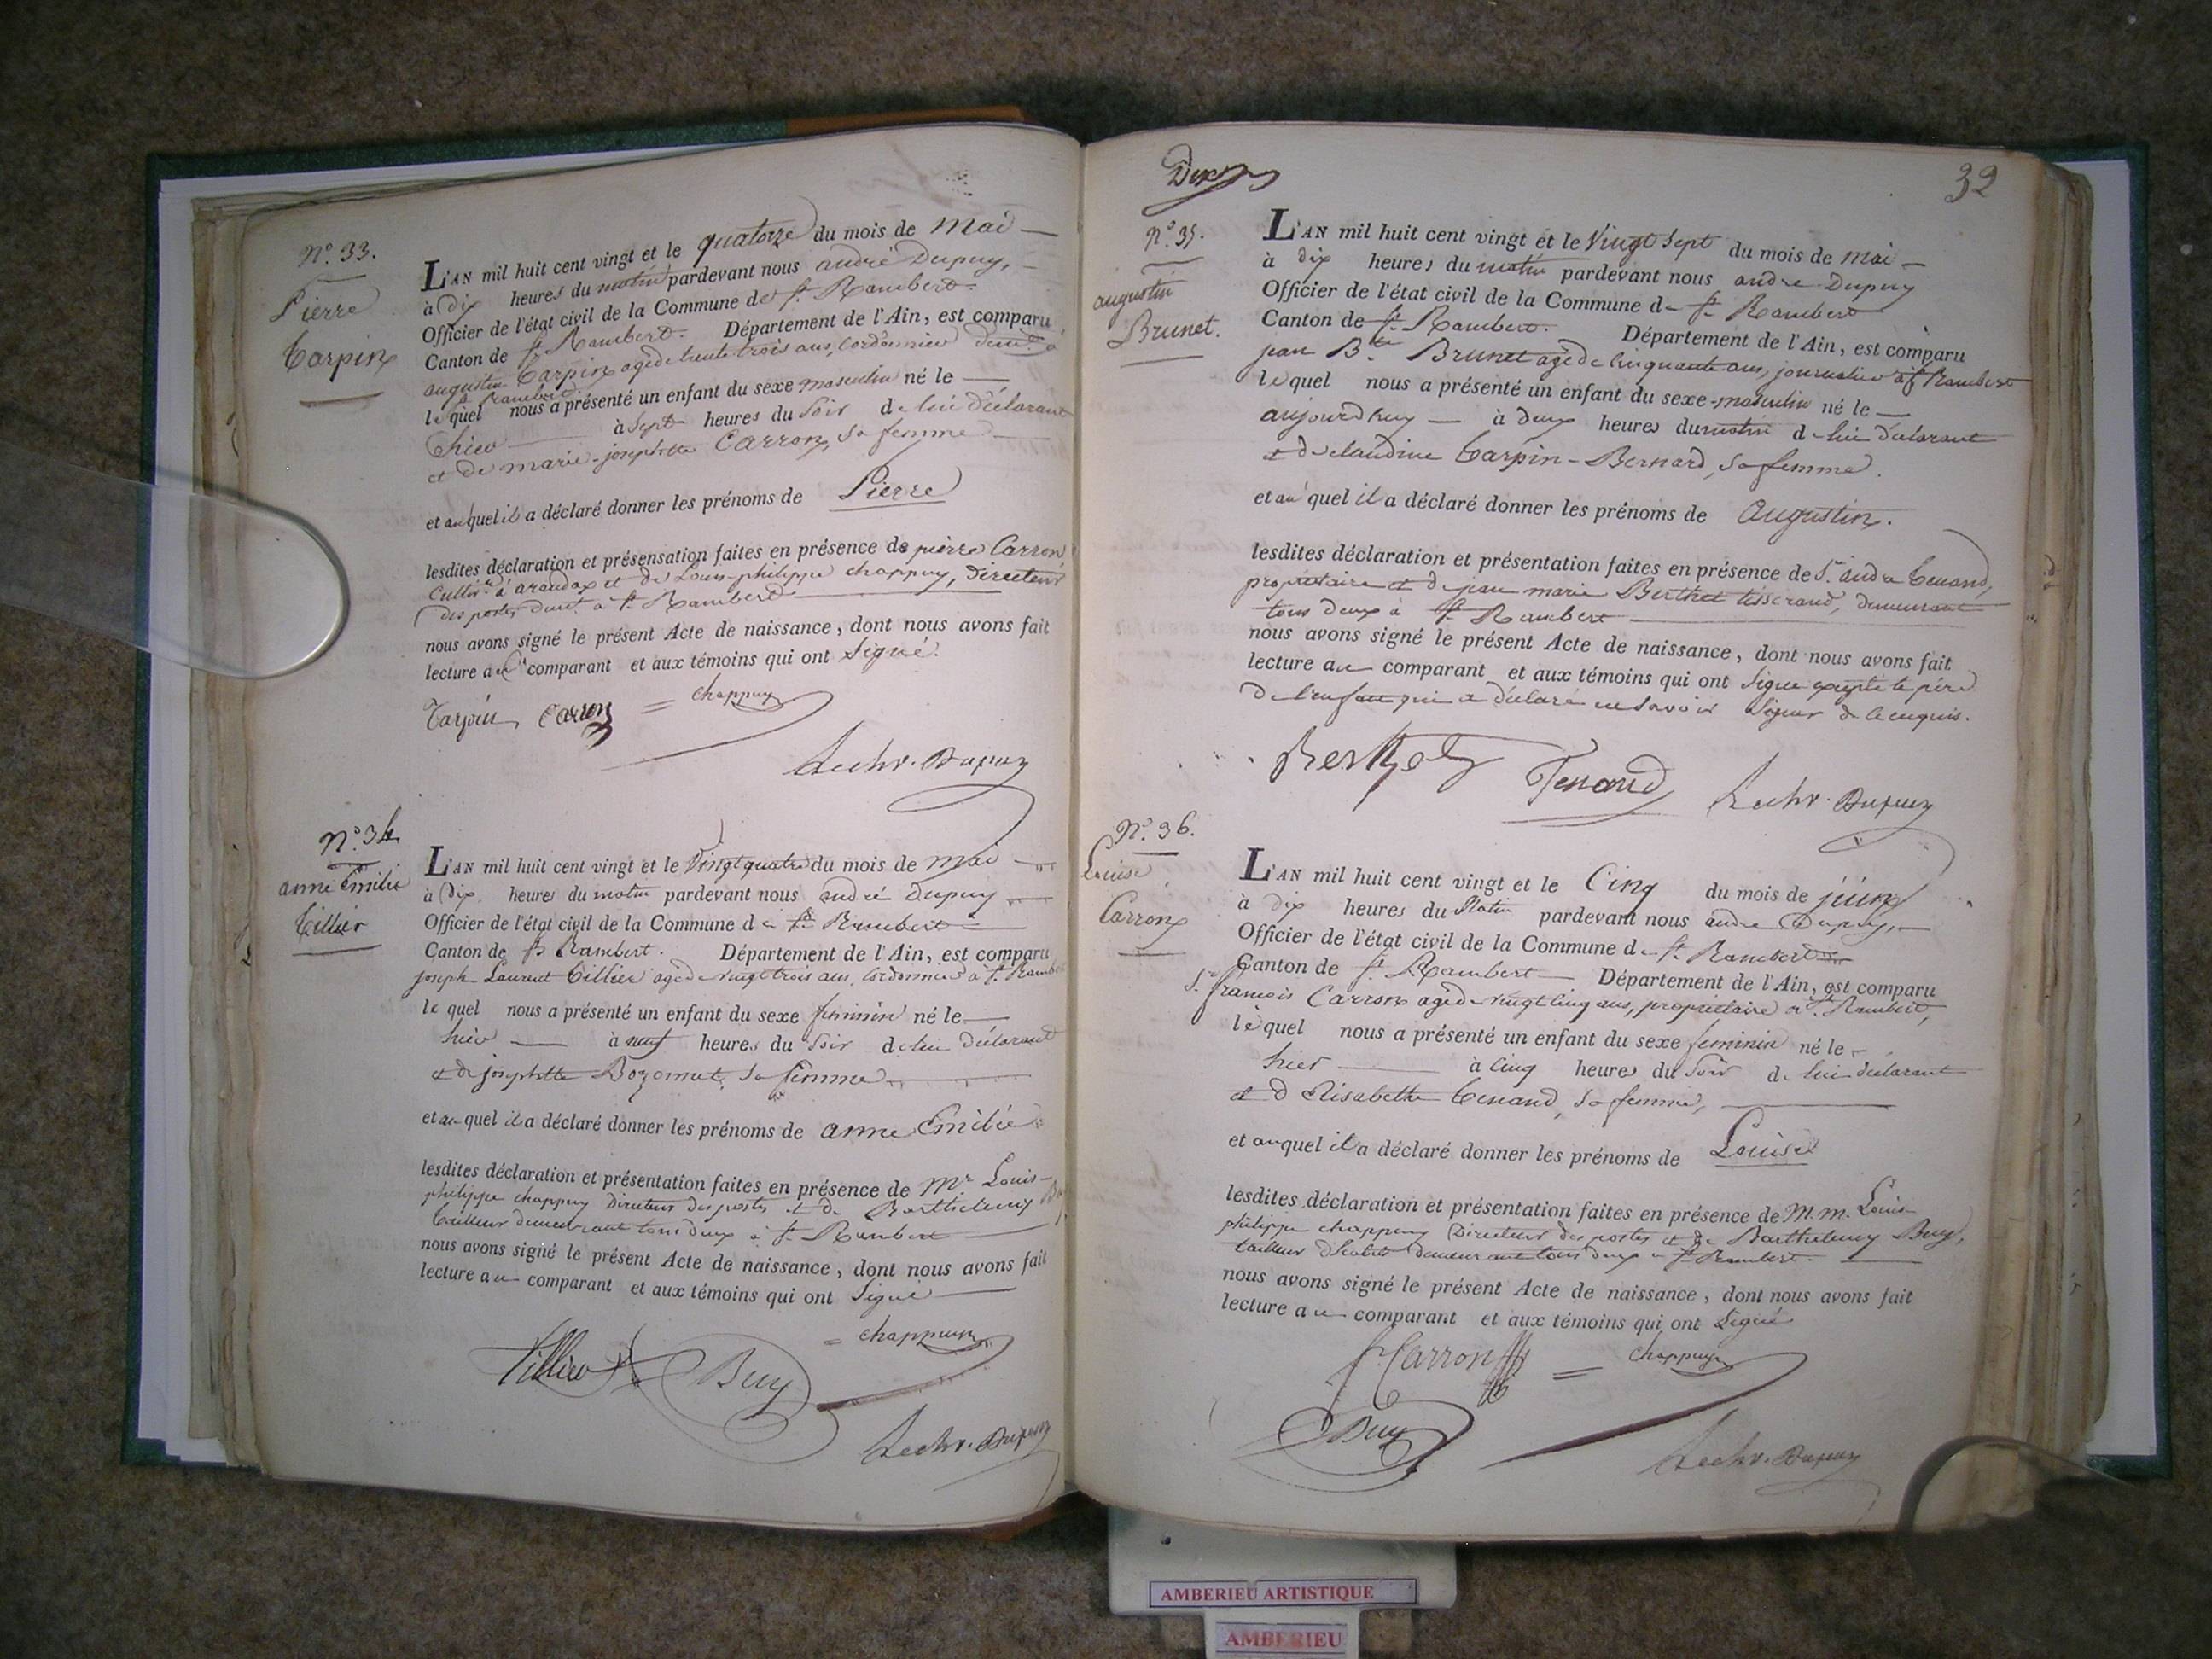 N.º 33.
Pierre
Tarpin
L'AN mil huit cent vingt et le quatorze du mois de Mai
à dix heures du matin pardevant nous andré Dupuy,
Officier de l'état civil de la Commune de St. Rambert.
Canton de St. Rambert. Département de l'Ain, est comparu
augustin Tarpin agé de trente trois ans, Cordonnier demt. à
St. Rambert
lequel nous a présenté un enfant du sexe masculin né le
hier à sept heures du Soir de lui déclarant
et de marie-josephtte Carron, sa femme
et auquel il a déclaré donner les prénoms de Pierre
lesdites déclaration et présensation faites en présence de pierre Carron
Cultivr. à arandax et de Louis-philippe chappuy, directeur
des postes demt. à St. Rambert
nous avons signé le présent Acte de naissance, dont nous avons fait
lecture au comparant et aux témoins qui ont Signé.
Tarpin Carron = chappuy
Dupuy
N.º 34
anne Emilie
Tillier
L'AN mil huit cent vingt et le Vingt quatre du mois de mai
à Dix heures du matin pardevant nous andré Dupuy
Officier de l'état civil de la Commune de St. Rambert
Canton de St. Rambert. Département de l'Ain, est comparu
joseph Laurent Tillier agé de vingt trois ans, Cordonnier à St. Rambert
lequel nous a présenté un enfant du sexe feminin né le
hier à neuf heures du Soir de lui déclarant
et de josephtte Bozonnet, sa femme
et auquel il a déclaré donner les prénoms de anne Emilie
lesdites déclaration et présentation faites en présence de Mr. Louis-
philippe chappuy Directeur des postes et de Barthelemy Buy
tailleur demeurant tous deux à St. Rambert
nous avons signé le présent Acte de naissance, dont nous avons fait
lecture au comparant et aux témoins qui ont Signé
= chappuy
Tillier Buy
Dupuy
32
N.º 35.
augustin
Brunet.
L'AN mil huit cent vingt et le Vingt Sept du mois de mai
à dix heures du matin pardevant nous andre Dupuy
Officier de l'état civil de la Commune de St. Rambert
Canton de St. Rambert. Département de l'Ain, est comparu
jean Bte. Brunet agé de Cinquante ans, journalier à St. Rambert
lequel nous a présenté un enfant du sexe masculin né le
aujourd'huy à deux heures du matin de lui déclarant
et de claudine Tarpin-Bernard, sa femme.
et auquel il a déclaré donner les prénoms de Augustin.
lesdites déclaration et présentation faites en présence de Sr. andre Tenand,
propriétaire et de jean marie Berthet tisserand, demeurant
tous deux à St. Rambert
nous avons signé le présent Acte de naissance, dont nous avons fait
lecture au comparant et aux témoins qui ont Signé excepté le père
de l'enfant qui a déclaré ne Savoir Signer de ce enquis.
Berthet Tenand Dupuy
N.º 36.
Louise
Carron
L'AN mil huit cent vingt et le Cinq du mois de juin
à dix heures du Matin pardevant nous andre Dupuy,
Officier de l'état civil de la Commune de St. Rambert
Canton de St. Rambert Département de l'Ain, est comparu
Sr. francois Carron agé de vingt cinq ans, propriétaire à St. Rambert,
lequel nous a présenté un enfant du sexe feminin né le
hier à cinq heures du Soir de lui déclarant
et d Elisabethe Tenand, sa femme,
et auquel il a déclaré donner les prénoms de Louise
lesdites déclaration et présentation faites en présence de M.m. Louis-
philippe chappuy Directeur des postes et de Barthelemy Buy,
tailleur d'habits demeurant tous deux à St. Rambert.
nous avons signé le présent Acte de naissance, dont nous avons fait
lecture au comparant et aux témoins qui ont Signé
f. Carron = chappuy
Buy
Dupuy
AMBERIEU ARTISTIQUE
AMBERIEU